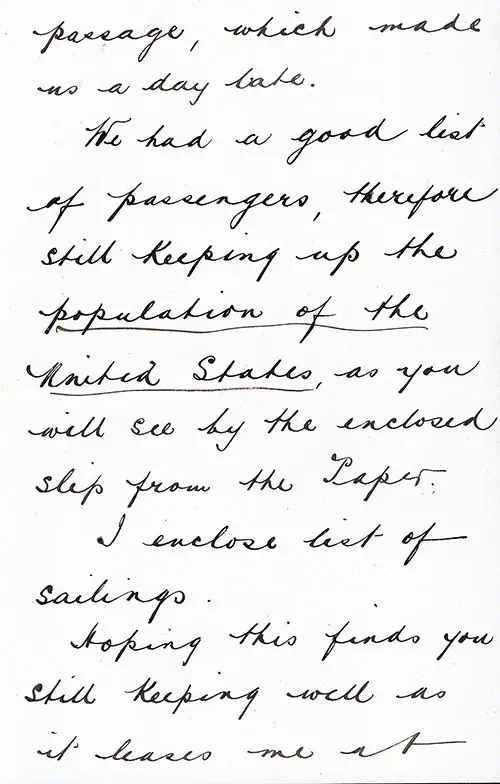 passage, which made
us a day late.
We had a good list
of passengers, therefore
still keeping up the
population of the
United States, as you
will see by the enclosed
slip from the Paper.
I enclose list of
sailings.
Hoping this finds you
still keeping well as
it leaves me at